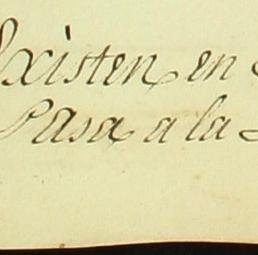 Existen en
Pasa a la